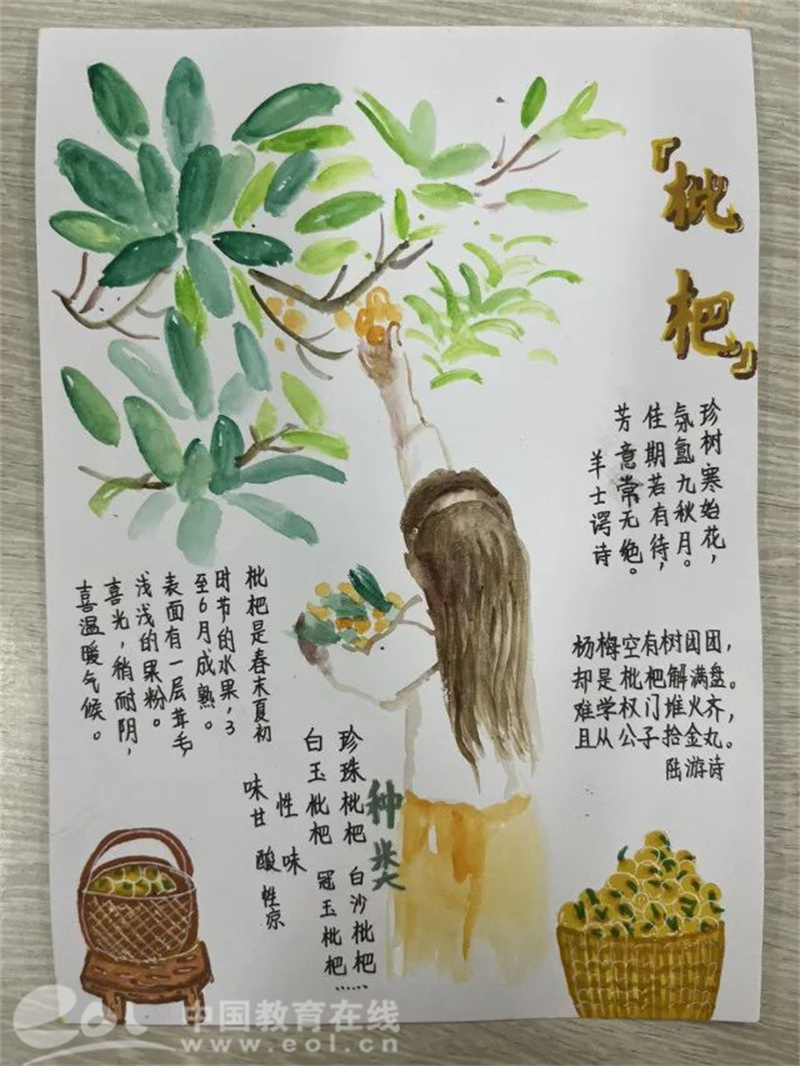 『枇杷』
珍树寒始花，
氛氲九秋月。
佳期若有待，
芳意常无绝。
羊士谔诗
杨梅空有树团团，
却是枇杷解满盘。
难学权门堆火齐，
且从公子拾金丸。
陆游诗
枇杷是春末夏初
时节的水果，3
至6月成熟。
表面有一层茸毛，
浅浅的果粉。
喜光，稍耐阴，
喜温暖气候。
种类
珍珠枇杷 白沙枇杷
白玉枇杷 冠玉枇杷……
性味
味甘 酸 性凉
eol 中国教育在线
www.eol.cn